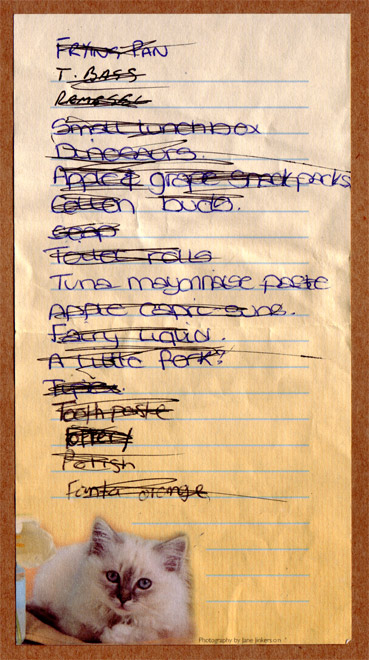 FRYING PAN
T. BAGS
Small lunchbox
Dinosaurs.
Apple & grape snack packs
Cotton buds.
Soap
Toilet rolls
Tuna mayonnaise paste
Apple capri suns.
Fairy Liquid.
A Little Pork?
Toothpaste
Polish
Fanta orange
Photography by Jane Jinkerson